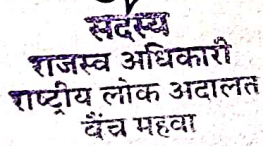 सदस्य
राजस्व अधिकारी
राष्ट्रीय लोक अदालत
बैंच महवा